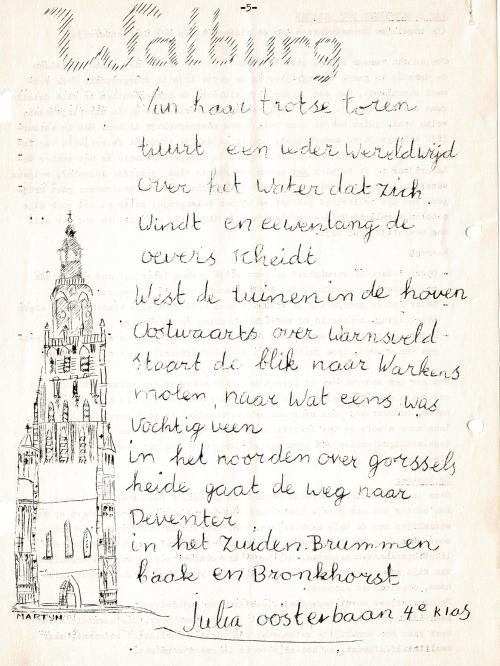 -5-
Walburg
Van haar trotse toren
tuurt een ieder wereldwijd
over het water dat zich
windt en eeuwenlang de
oevers scheidt
West de tuinen in de hoven
Oostwaarts over Warnsveld
staart de blik naar Warkens
molen, naar wat eens was
vochtig veen
in het noorden over gorssels
heide gaat de weg naar
Deventer
in het zuiden Brummen
Baak en Bronkhorst
Julia oosterbaan 4e klas
MARTYN